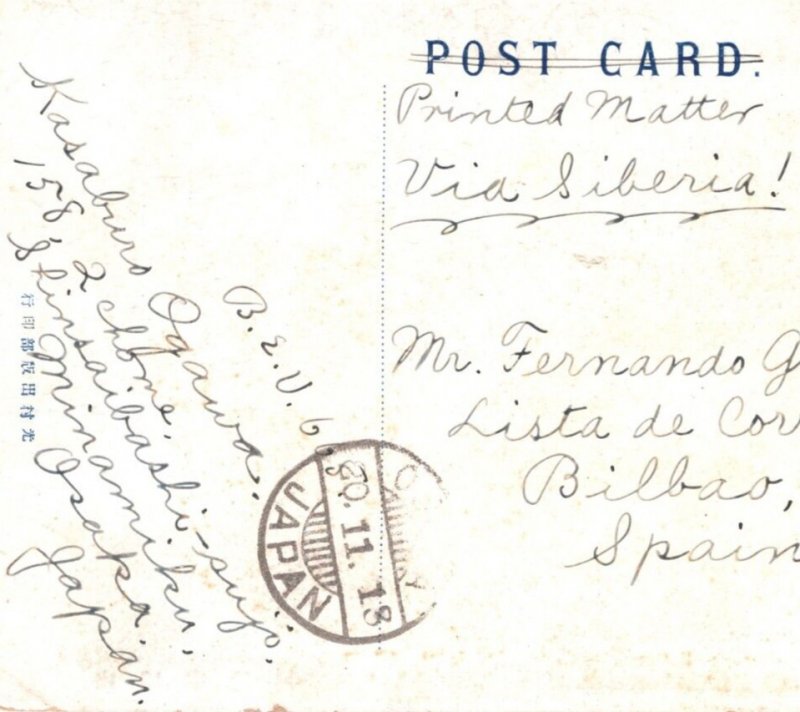 POST CARD.
Printed Matter
Via Siberia!
Mr. Fernando G
Lista de Cor
Bilbao,
Spain
B.E.U. 6
Kasaburo Ogawa.
158, 2 chome,
Shinsaibashi-suji.
Minamiku,
Osaka.
Japan.
JAPAN
20.11.13
光村出版部印行